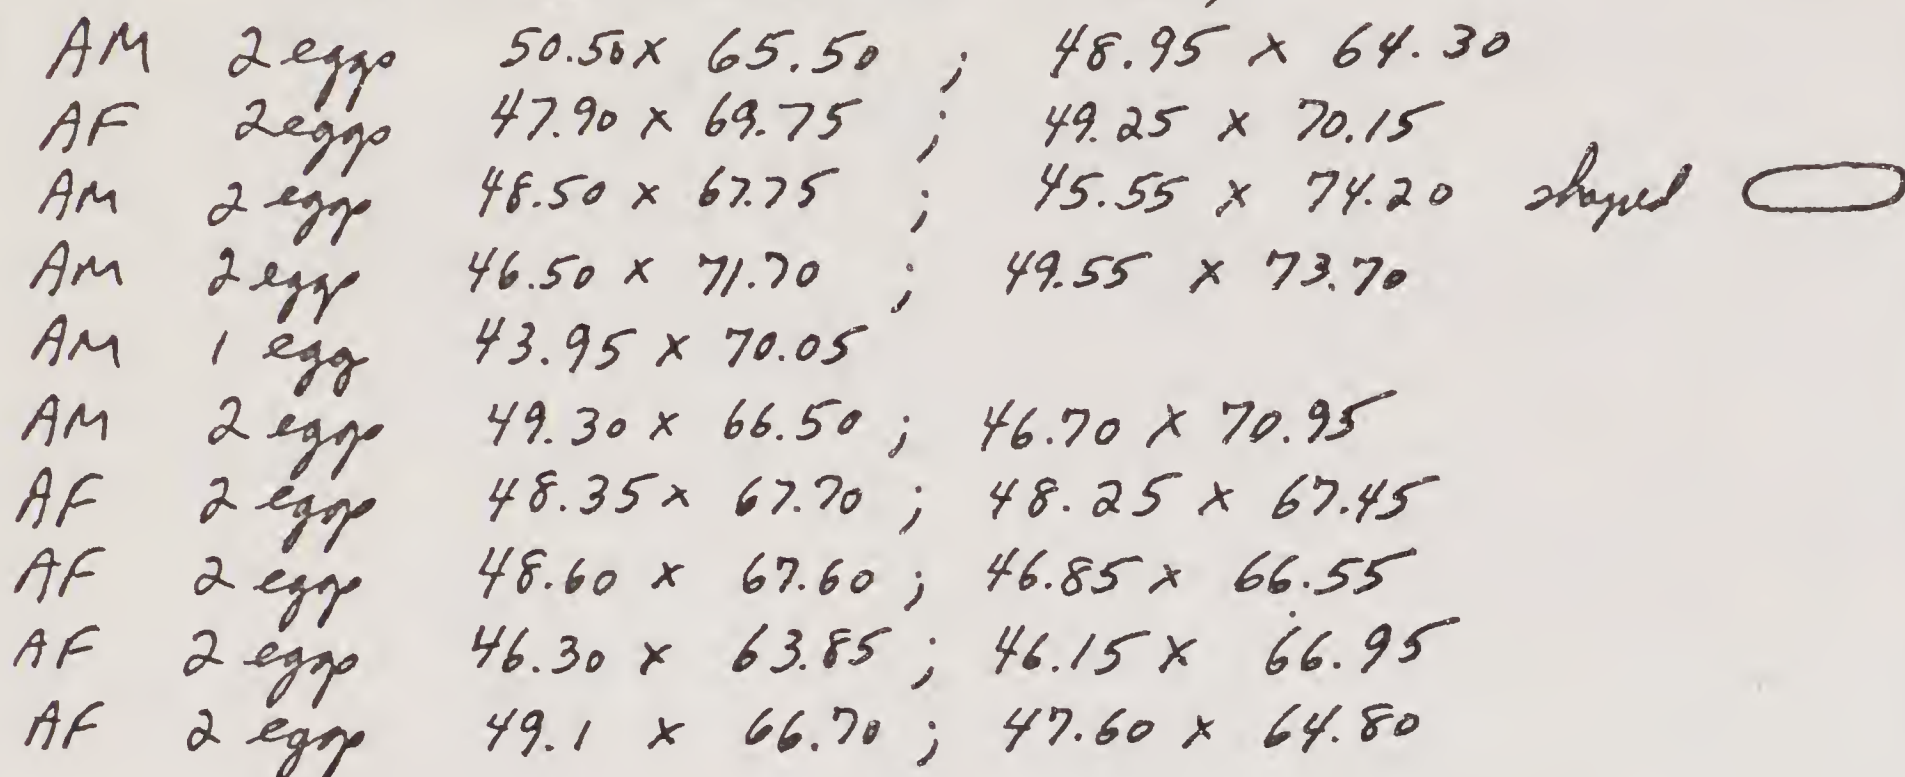 AM 2 eggs 50.50 x 65.50 ; 48.95 x 64.30
AF 2 eggs 47.90 x 69.75 ; 49.25 x 70.15
AM 2 eggs 48.50 x 67.75 ; 45.55 x 74.20 shaped
AM 2 eggs 46.50 x 71.70 ; 49.55 x 73.70
AM 1 egg 43.95 x 70.05
AM 2 eggs 49.30 x 66.50 ; 46.70 x 70.95
AF 2 eggs 48.35 x 67.70 ; 48.25 x 67.45
AF 2 eggs 48.60 x 67.60 ; 46.85 x 66.55
AF 2 eggs 46.30 x 63.85 ; 46.15 x 66.95
AF 2 eggs 49.1 x 66.70 ; 47.60 x 64.80